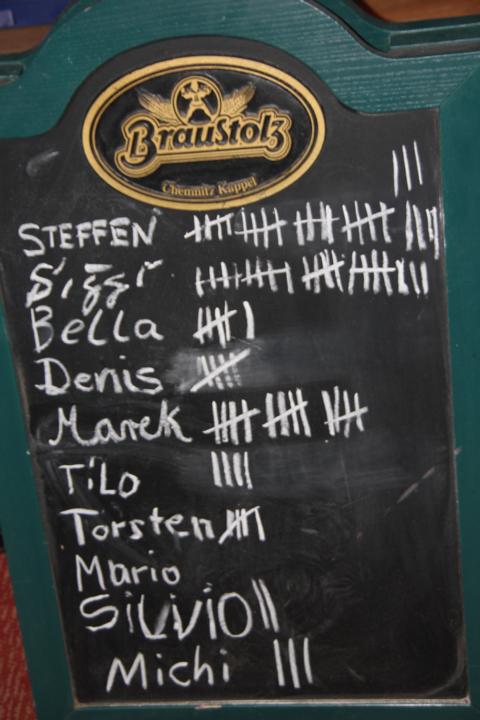 BrauStolz
Chemnitz Kappel
|||
STEFFEN 卌 卌 卌 卌 ||||
Siggi 卌 卌 卌 卌 |||
Bella 卌 |
Denis 卌
Marek 卌 卌 卌
TiLo ||||
Torsten 卌
Mario
SiLViO ||
Michi |||